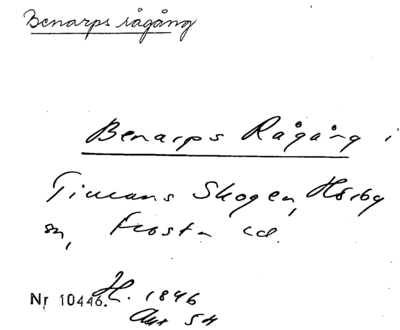 Benarps rågång
Benarps Rågång i
Timans Skogen, Hörby
sn, Frosta hd.
Nr 10446. H. 1846
Akt 54